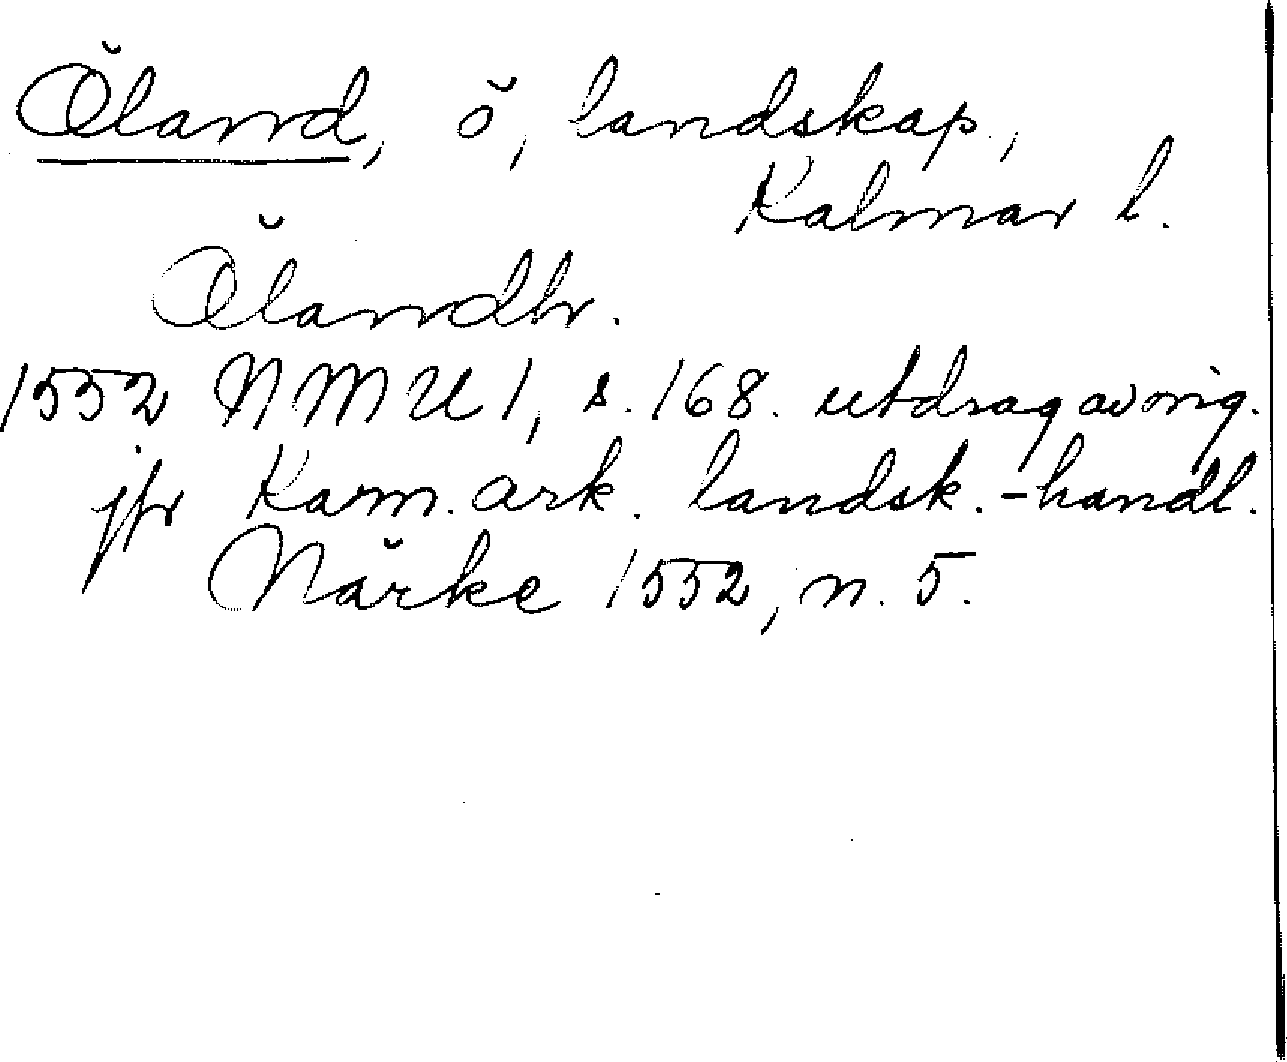 Öland, ö, landskap.,
Kalmar l.
Ölandh.
1552 NMU 1, s. 168. utdrag av orig.
jfr Kam. ark. landsk.-handl.
Närke 1552, n. 5.